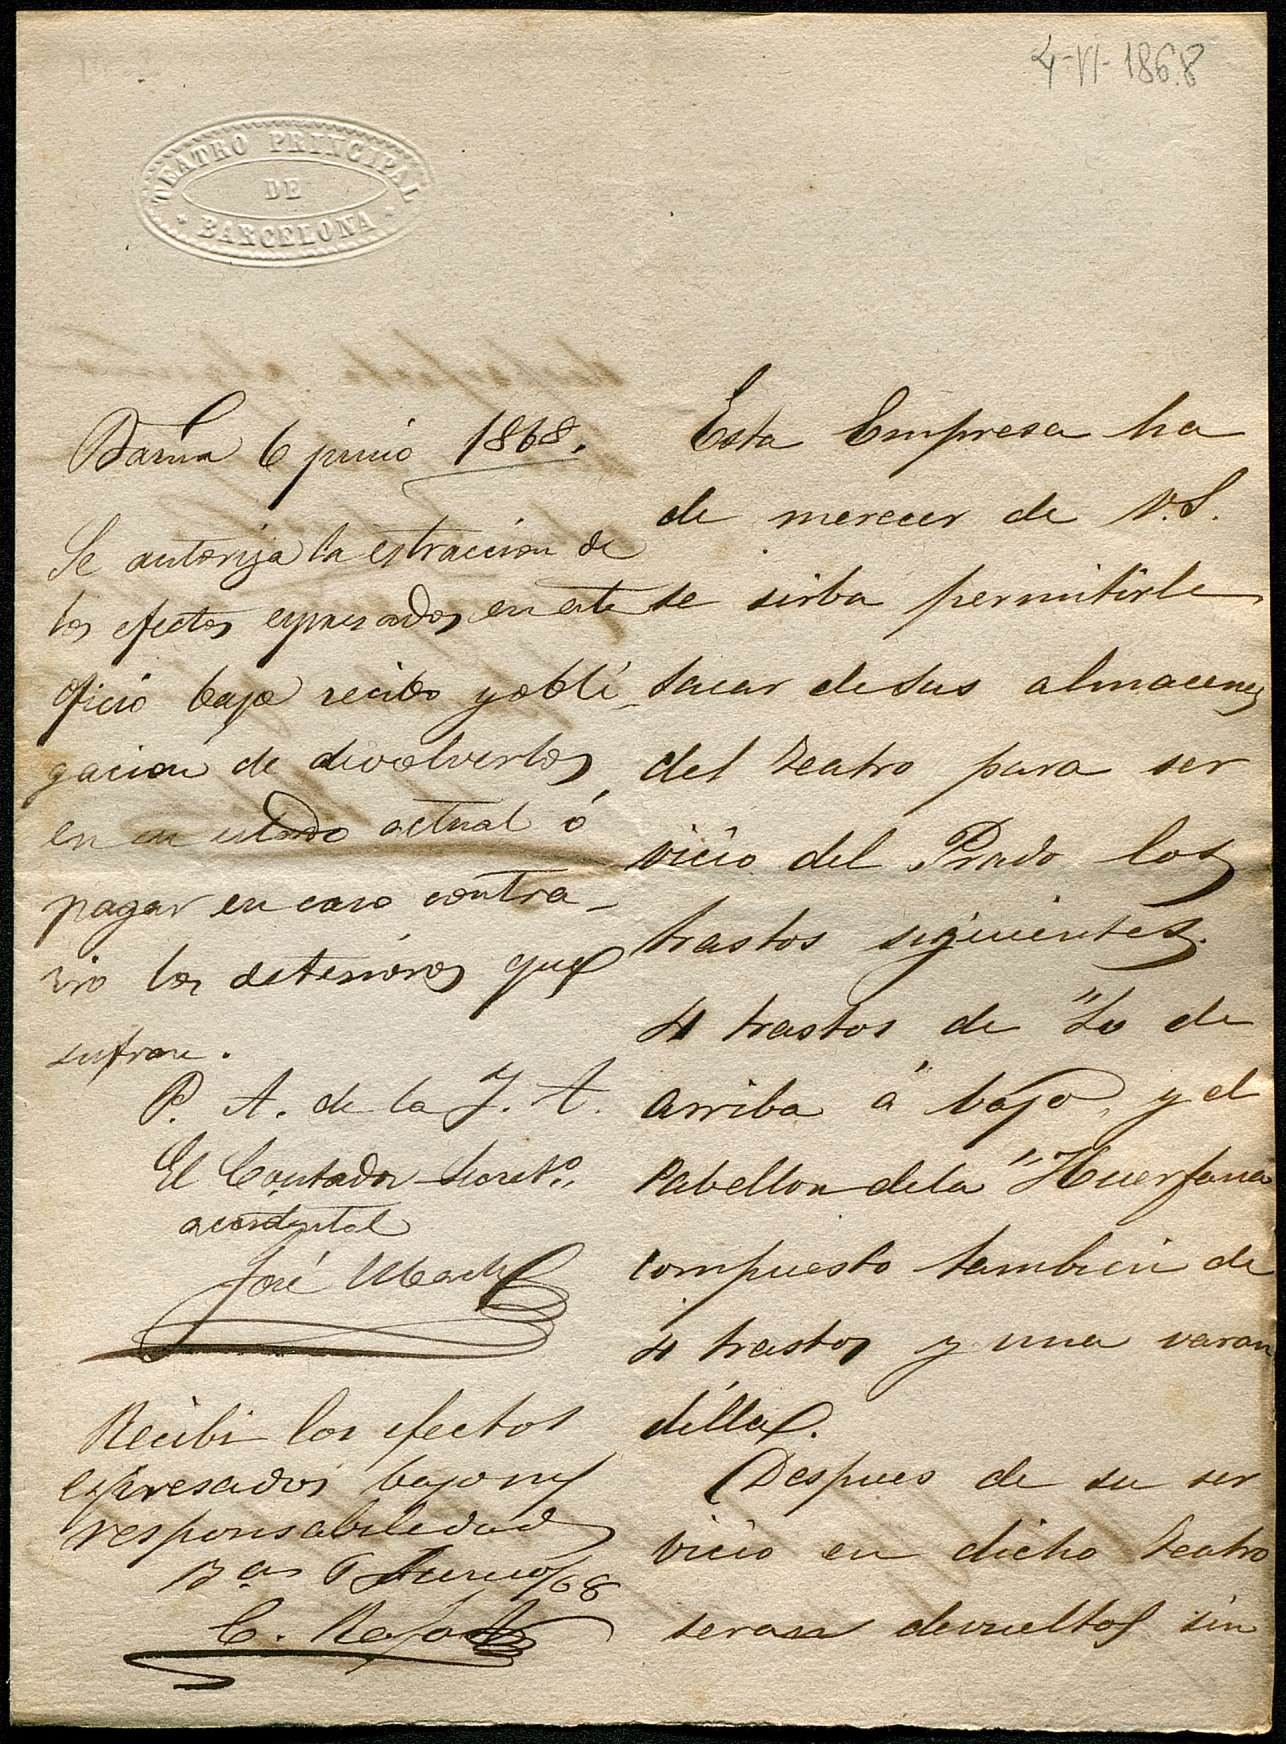 4-VI-1868
TEATRO PRINCIPAL
DE
BARCELONA
Barna 6 junio 1868.
Se autoriza la estraccion de
los efectos espresados en este
oficio bajo recibo y obli-
gacion de devolverlos
en su estado actual ó
pagar en caso contra-
rio los deterioros que
sufran.
P. A. de la J. A.
El Contador Secret.º
accidental
José
Recibi los efectos
espresados bajo my
responsabilidad
Bar 6 Junio/68
C.
Esta Empresa ha
de merecer de V.S.
se sirba permitirle
sacar de sus almacenes
del teatro para ser
vicio del Prado los
trastos siguientes.
4 trastos de "Lo de
arriba á bajo, y el
Pabellon dela "Huerfana
compuesto tambien de
4 trastos y una varan
dilla.
Despues de su ser
vicio en dicho teatro
seran devueltos sin